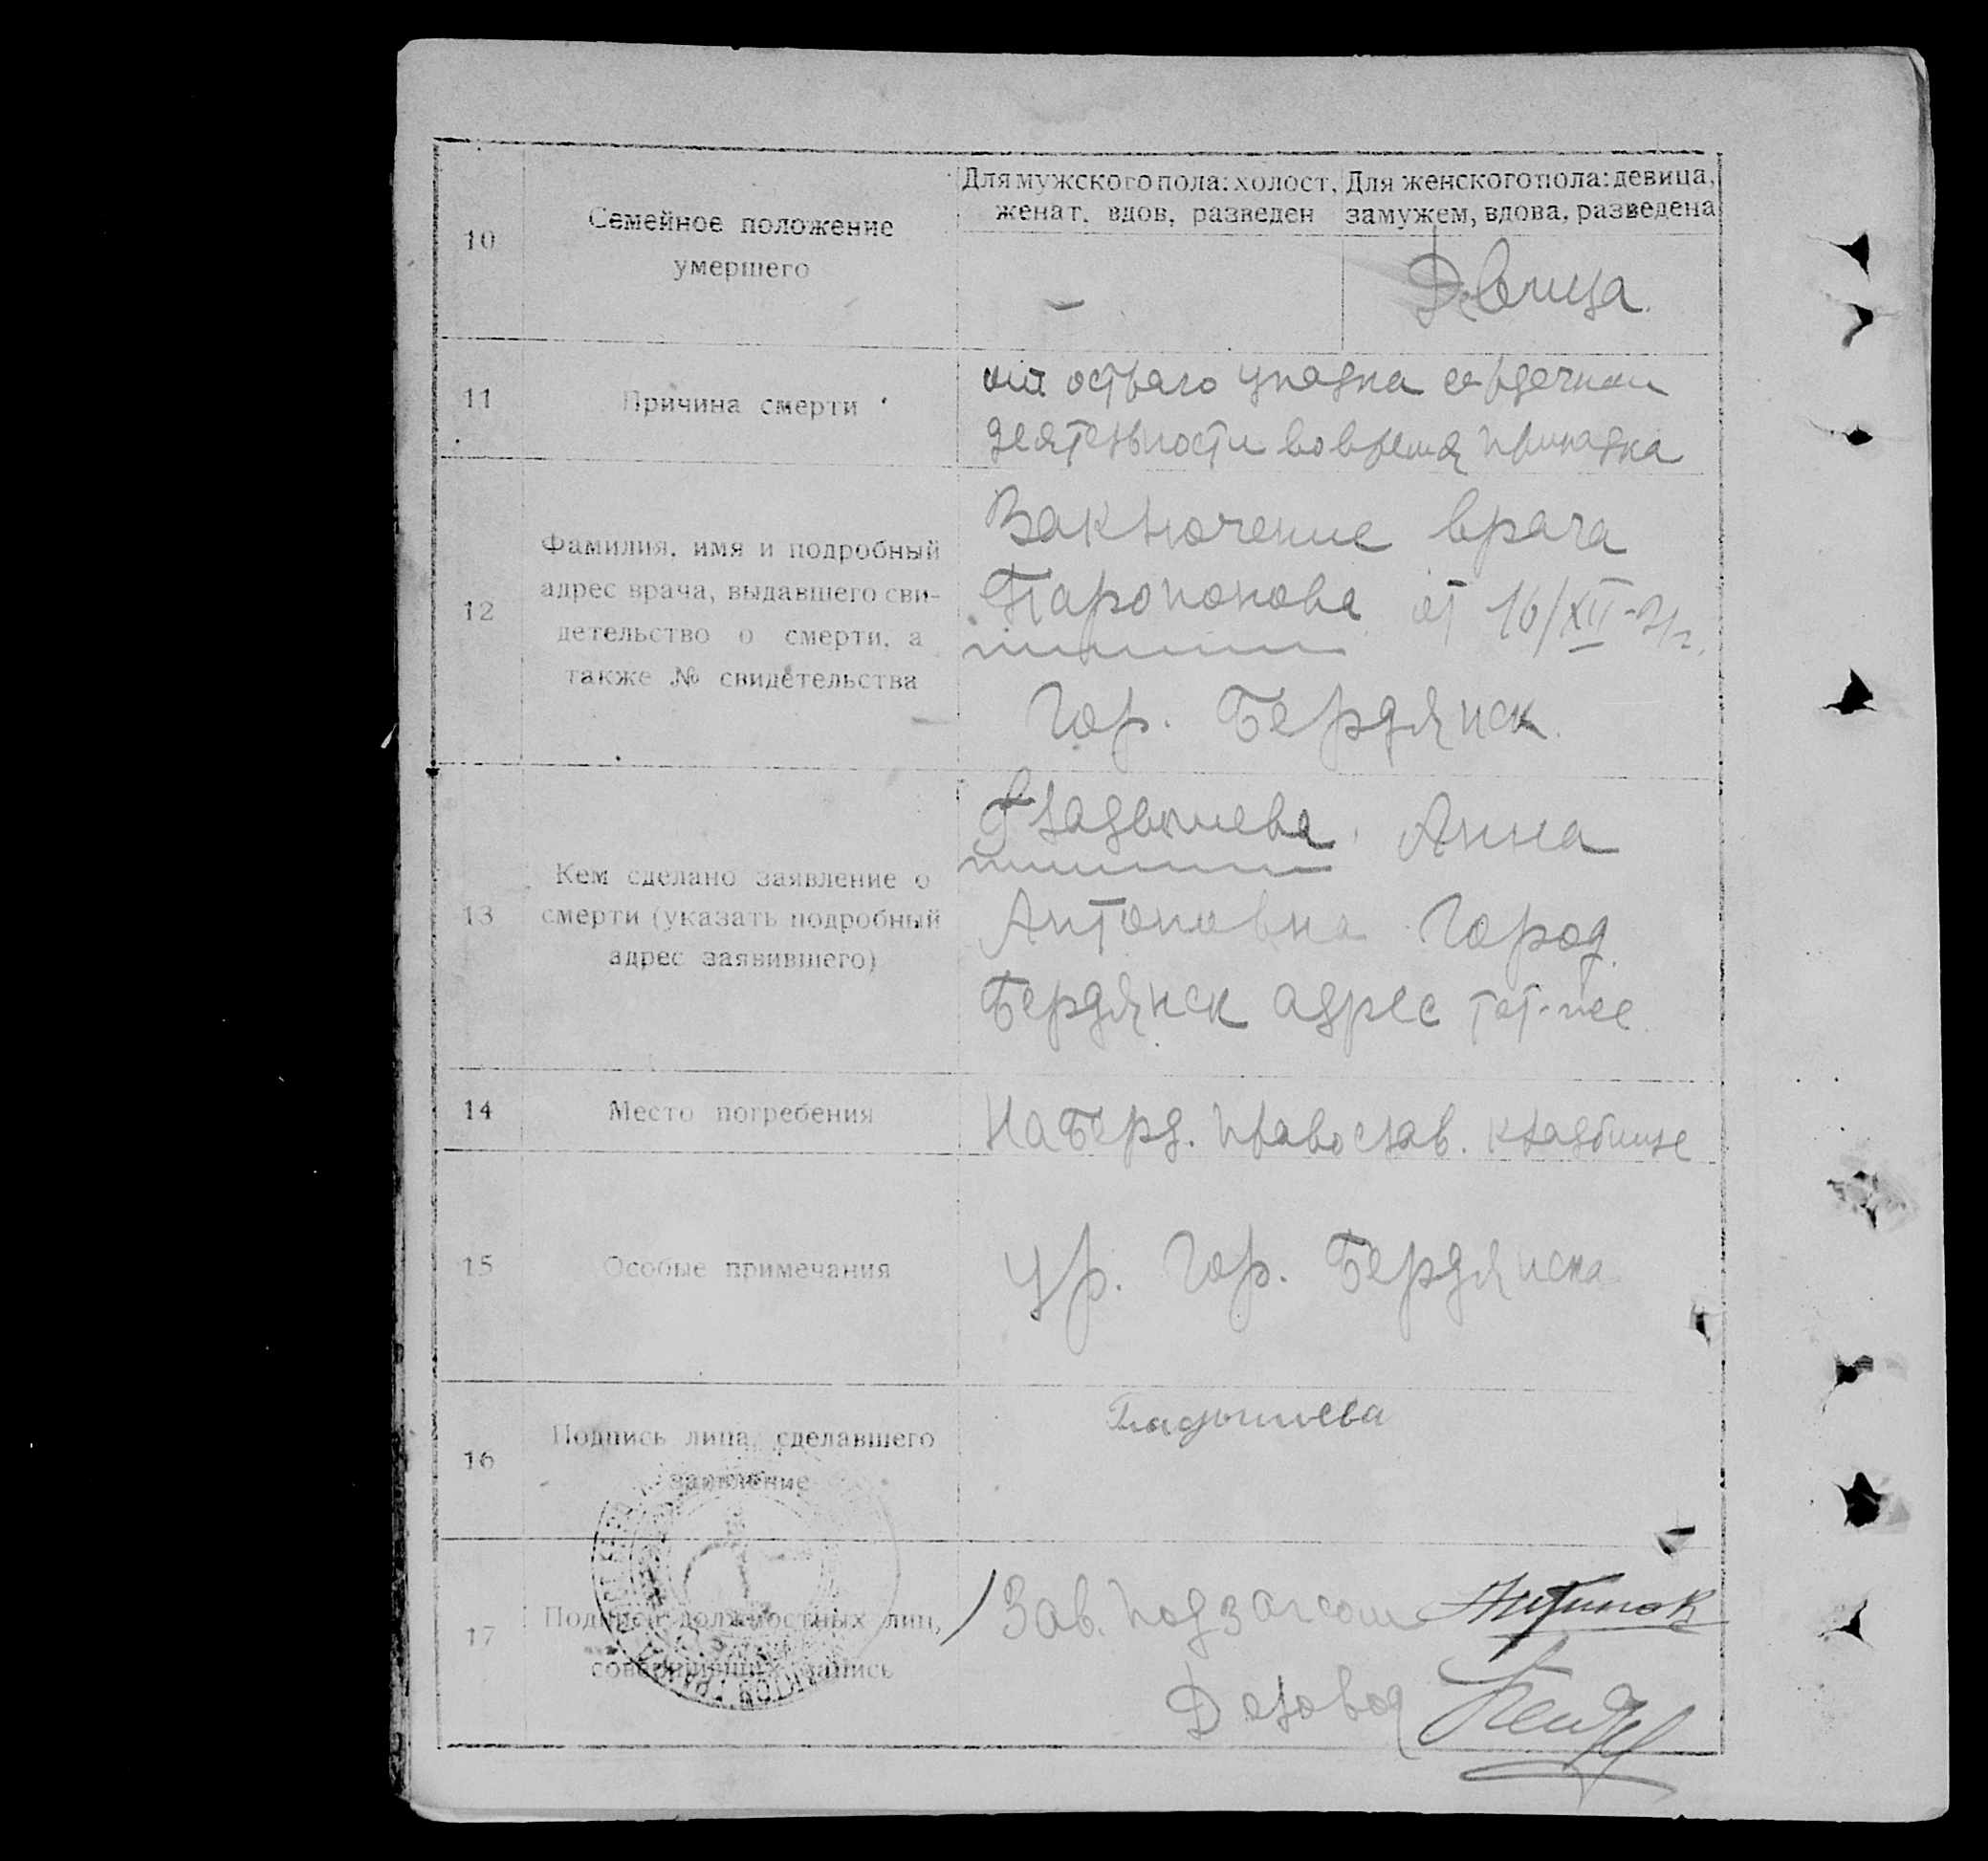 10
Семейное положение
умершего
Для мужского пола: холост,
женат, вдов, разведен
Для женского пола: девица,
замужем, вдова, разведена
—
Девица.
11
Причина смерти
от острого упадка сердечной
деятельности во время припадка
12
Фамилия, имя и подробный
адрес врача, выдавшего сви-
детельство о смерти, а
также № свидетельства
Заключение врача
от 16/XII-
Гор. Бердянск.
13
Кем сделано заявление о
смерти (указать подробный
адрес заявившего)
Гладышева Анна
Антоновна Город
Бердянск адрес тот-же
14
Место погребения
На Берд. Православ. кладбище
15
Особые примечания
Ур. Гор. Бердянска
16
Подпись лица, сделавшего
заявление
Гладышева
17
Подписи должностных лиц,
совершивших запись
Зав. подзагсом
Деловод